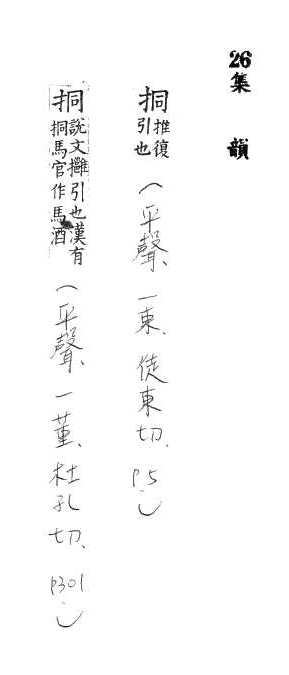 26集 韻
挏推復引也（平聲、一東、徒東切、P5。）
挏說文攤引也漢有挏馬官作馬酒（平聲、一董、杜孔切、P301。）